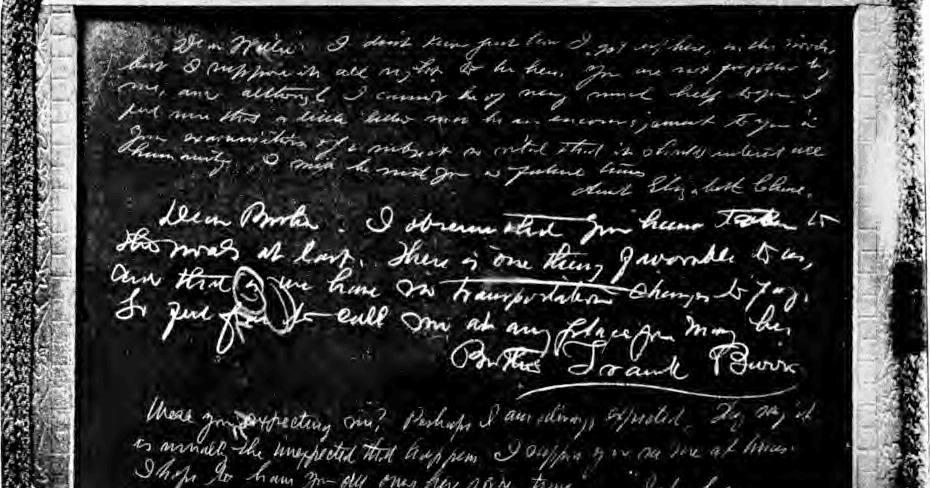 Dear Willie. I don't know just how I got up here, in the woods,
but I suppose its all right to be here. You are not forgotten by
me, and although I cannot be of very much help to you I
feel sure that a little letter may be an encouragement to you in
your examination of a subject so vital that it should interest all
humanity. I will be with you in future times
Aunt Elizabeth Chase.
Dear Brother. I observe that you have Taken to
the woods at last. There is one thing favorable to us,
and that is we have no transportation charges to pay.
So feel free to call on me at any place you may be
Brother Frank Burr
Were you expecting me? Perhaps I am always expected. They say it
is usually the unexpected that happens. I suppose you see me at times.
I hope to have you all over here some time